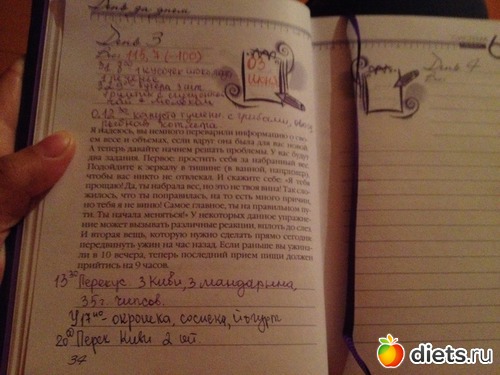 День за днем
День 3
Вес 113,7 (-100)
1 кусочек шоколад
03
ИЮНЯ
чай + молоком
капуста тушен. с грибами,
рыбная котлета
Я надеюсь, вы немного переварили информацию о сво-
ем весе и объемах, если вдруг она была для вас новой.
А теперь давайте начнем решать проблемы. У вас будут
два задания. Первое: простить себя за набранный вес.
Подойдите к зеркалу в тишине (в ванной, например),
чтобы вас никто не отвлекал. И скажите себе: «Я тебя
прощаю! Да, ты набрала вес, но это не твоя вина! Так сло-
жилось, что ты поправилась, на то есть много причин,
но тебя я не виню! Самое главное, ты на правильном пу-
ти. Ты начала меняться!» У некоторых данное упражне-
ние может вызывать различные реакции, вплоть до слез.
И вторая вещь, которую нужно сделать прямо сегодня:
передвинуть ужин на час назад. Если раньше вы ужина-
ли в 10 вечера, теперь последний прием пищи должен
прийтись на 9 часов.
13 30 Перекус 3 киви, 3 мандарина,
35 г. чипсов.
У 17 40 - окрошка, сосиска, йогурт
20 Перек киви 2 шт.
34
День 4
Вес
diets.ru